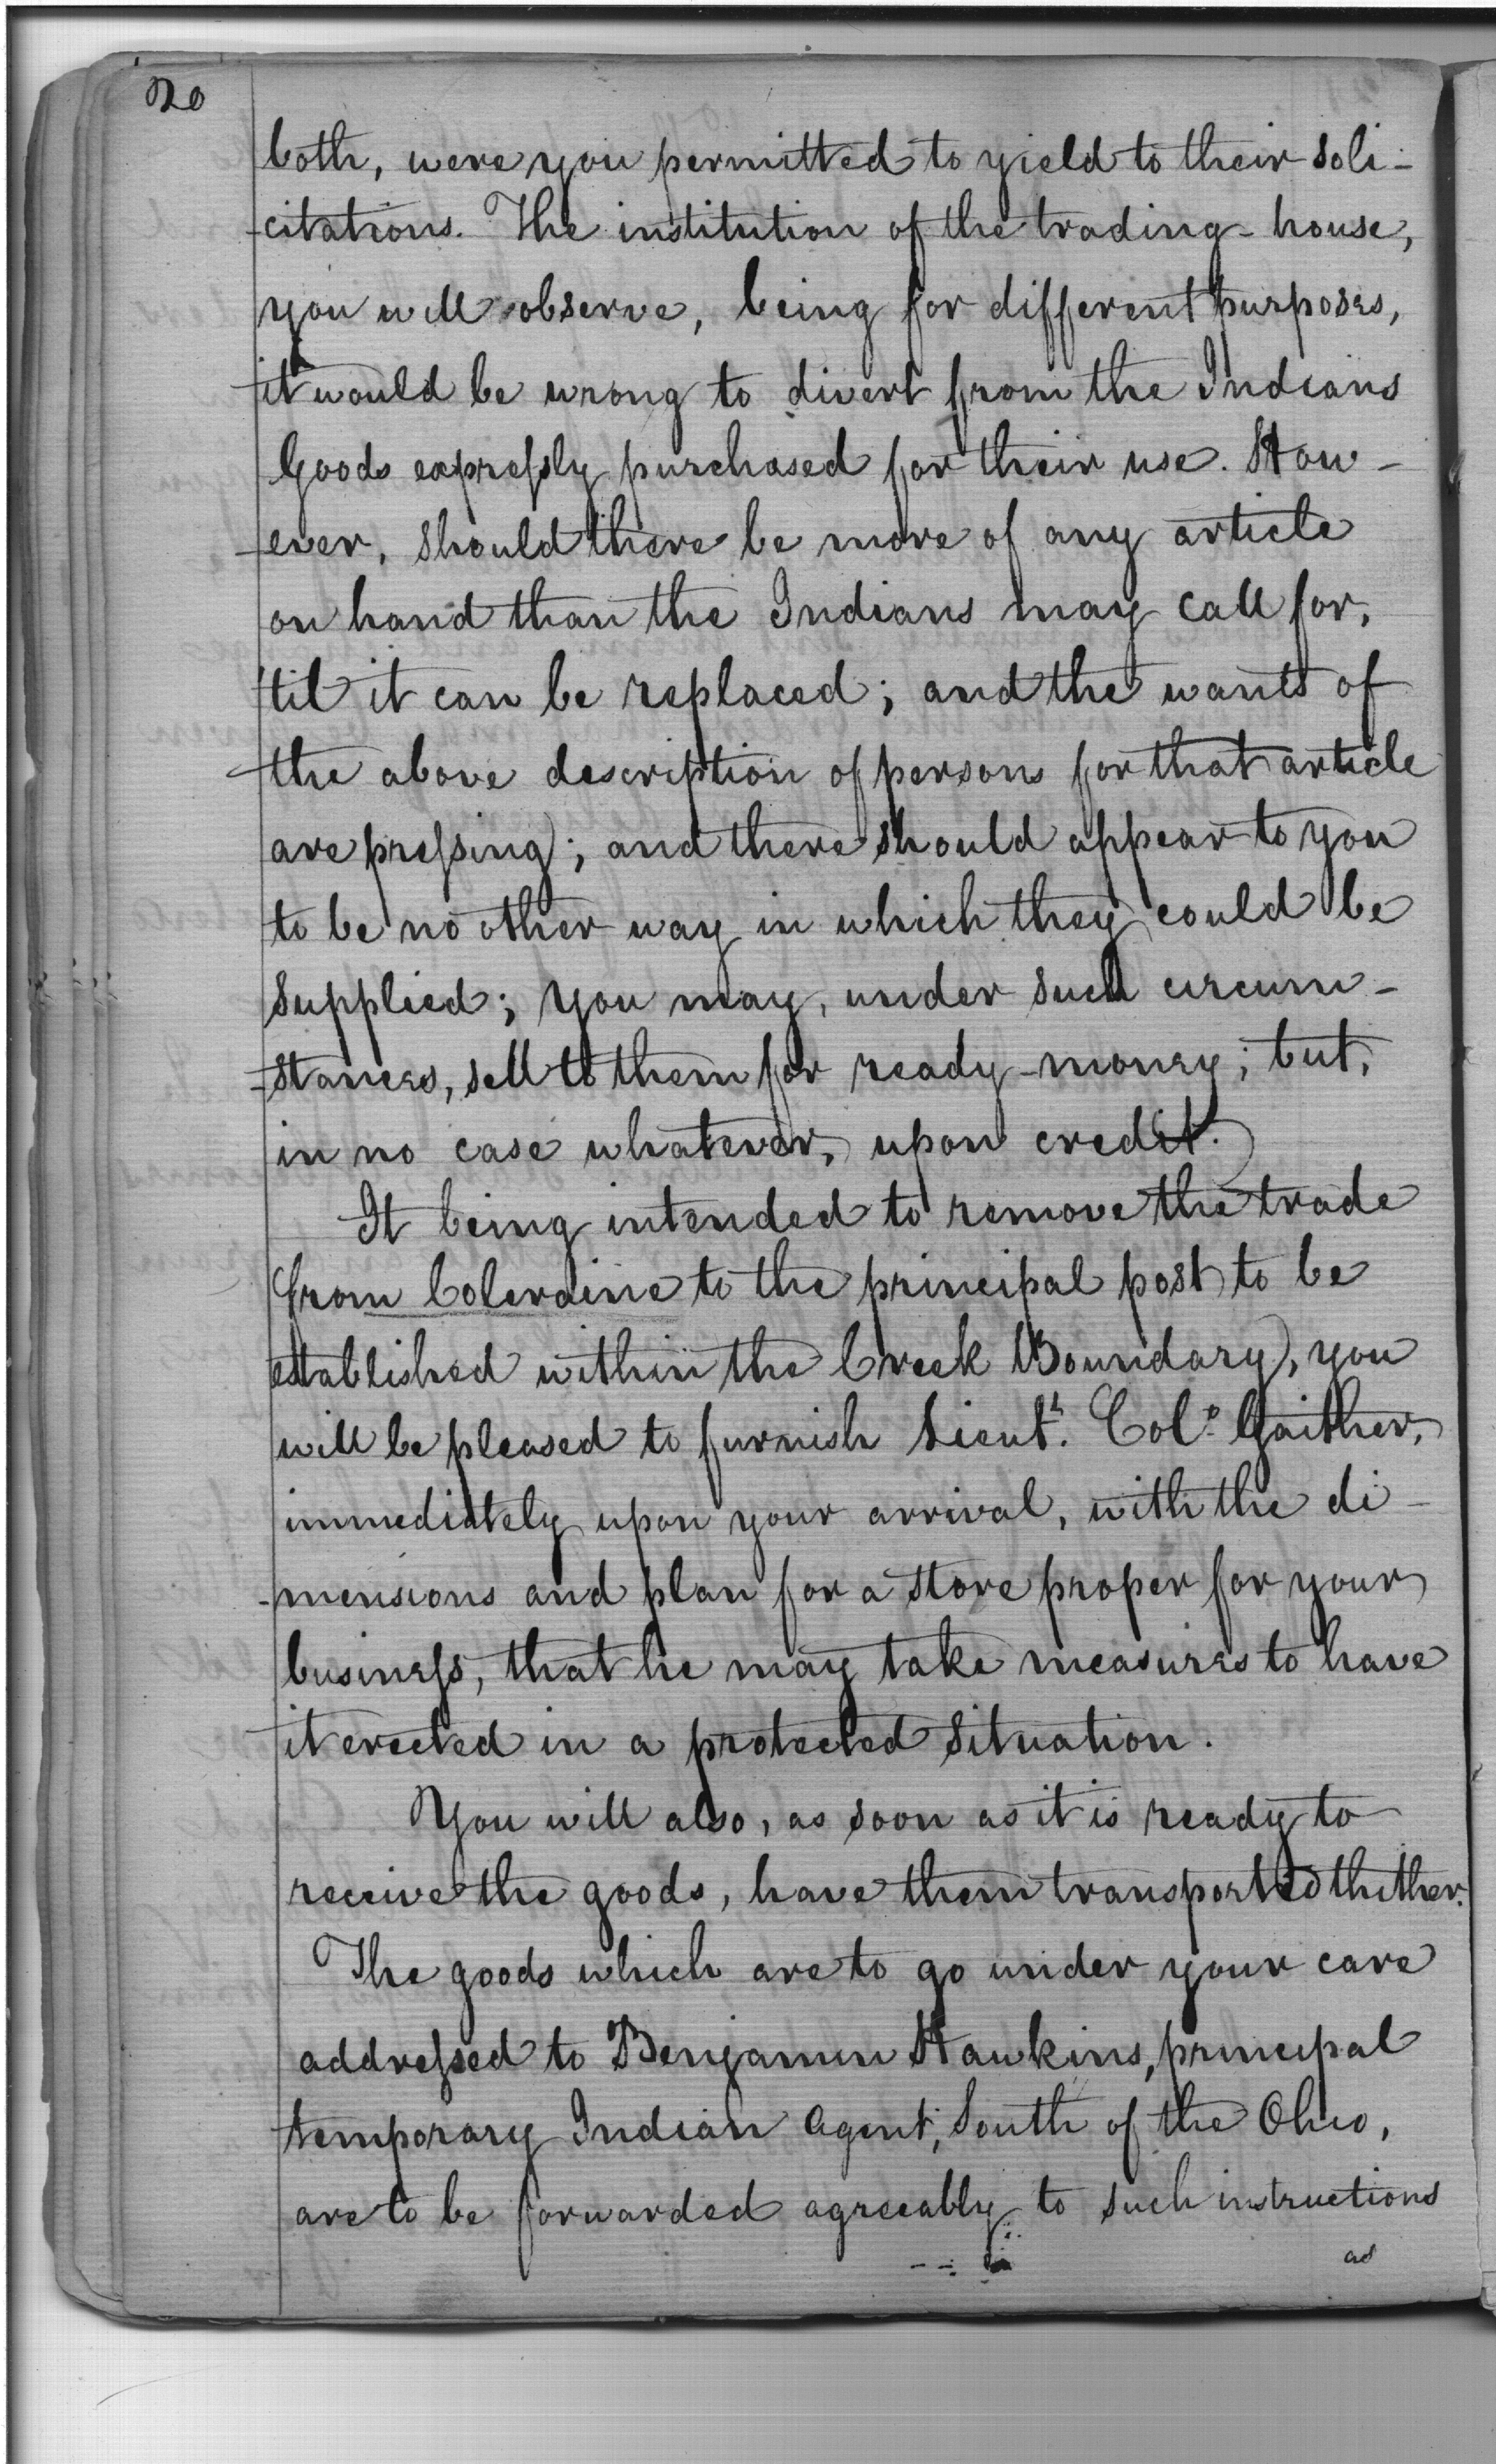 20
both, were you permitted to yield to their soli-
-citations. The institution of the trading-house,
you will observe, being for different purposes,
it would be wrong to divert from the Indians
Goods expreſsly purchased for their use. How-
-ever, should there be more of any article
on hand than the Indians may call for,
'til it can be replaced; and the wants of
the above description of persons for that article
are preſsing; and there should appear to you
to be no other way in which they could be
supplied; you may, under such circum-
-stances, sell to them for ready-money; but,
in no case whatever, upon credit.
It being intended to remove the trade
from Coleraine to the principal post to be
established within the Creek Boundary, you
will be pleased to furnish Lieut.t Col.o Gaither,
immediately upon your arrival, with the di-
-mensions and plan for a store proper for your
busineſs, that he may take measures to have
it erected in a protected situation.
You will also, as soon as it is ready to
receive the goods, have them transported thither.
The goods which are to go under your care
addreſsed to Benjamin Hawkins, principal
temporary Indian Agent, South of the Ohio,
are to be forwarded agreeably to such instructions
as